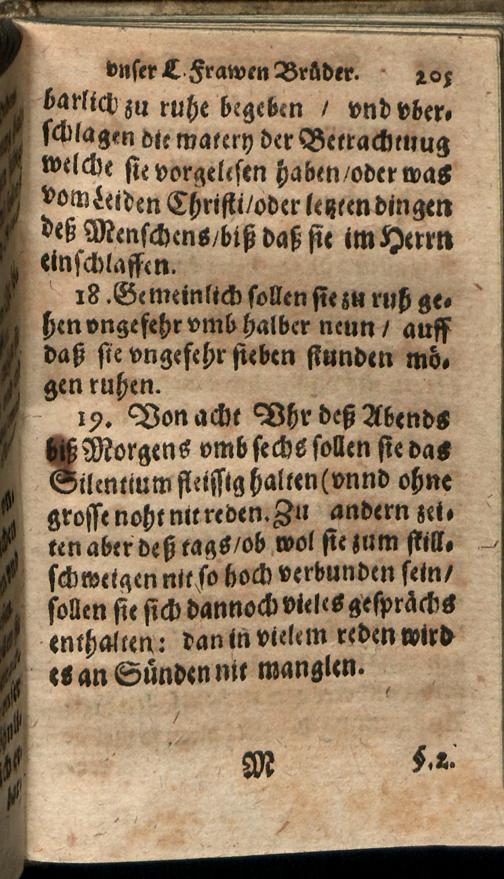 vnser L. Frawen Brüder. 205
barlich zu ruhe begeben / vnd vber-
schlagen die matery der Betrachtuug
welche sie vorgelesen haben/oder was
vom Leiden Christi/oder letzten dingen
deß Menschens/biß daß sie im Herrn
einschlaffen.
18. Gemeinlich sollen sie zu ruh ge-
hen vngefehr vmb halber neun / auff
daß sie vngefehr sieben stunden mö-
gen ruhen.
19. Von acht Vhr deß Abends
biß Morgens vmb sechs sollen sie das
Silentium fleissig halten (vnnd ohne
grosse noht nit reden. Zu andern zei-
ten aber deß tags/ob wol sie zum still-
schweigen nit so hoch verbunden sein/
sollen sie sich dannoch vieles gesprächs
enthalten: dan in vielem reden wird
es an Sünden nit manglen.
M §.2.